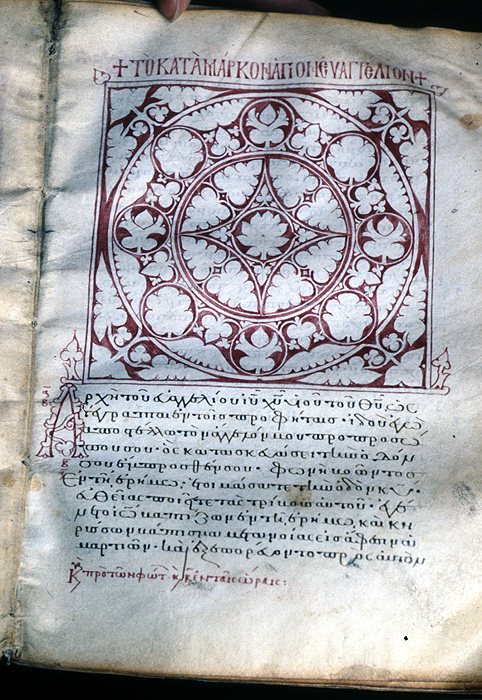 + Τὸ ΚΑΤᾺ ΜΆΡΚΟΝ ΑΓΙΟΝ ΕΥΑΓΓΕΛΙΟΝ +
Ἀρχὴ τοῦ εὐαγγελίου ἰυ χυ υἱοῦ τοῦ θυ, ὡς
γέγραπται ἐν τοῖς προφήταις· ἰδοὺ ἐγὼ
ἀποστέλλω τὸν ἄγγελόν μου πρὸ προσώ
που σου· ὃς κατασκευάσει τὴν ὁδόν
σου ἔμπροσθέν σου· φωνὴ βοῶντος
Ἐν τῇ ἐρήμω, ἑτοιμάσατε τὴν ὁδὸν κυ·
εὐθείας ποιεῖτε τὰς τρίβους αὐτοῦ· ἐγέ
νετο ἰωάννης βαπτίζων ἐν τῇ ἐρήμω, καὶ κη
ρύσσων βάπτισμα μετανοίας εἰς ἄφεσιν ἁ
μαρτιῶν· καὶ ἐξεπορεύοντο πρὸς αὐτὸν
πρὸ τῶν φώτ